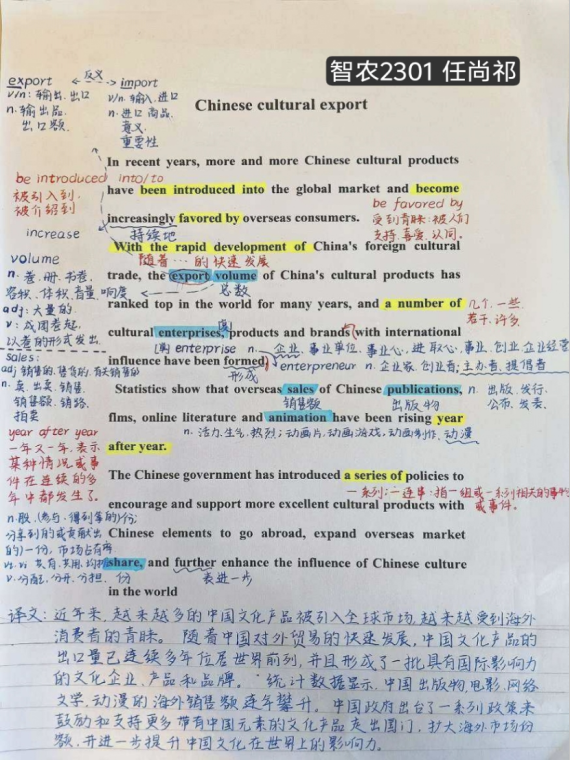 智农2301 任尚祁
export ←反义→ import
v/n: 输出.出口
n. 输出品.
出口额.
v/n. 输入.进口
n. 进口商品.
意义.
重要性
Chinese cultural export
In recent years, more and more Chinese cultural products
be introduced into/to
被引入到.
被介绍到
have been introduced into the global market and become
be favored by
受到青睐:被人们
支持.喜爱.认同.
increasingly favored by overseas consumers.
increase
持续地
With the rapid development of China's foreign cultural
随着…的快速发展
volume
n. 卷.册.书卷.
容积.体积.音量.响度
adj: 大量的
v: 成团卷起.
以卷的形式发出.
trade, the export volume of China's cultural products has
总数
ranked top in the world for many years, and a number of
几个.一些.
若干.许多.
cultural enterprises, products and brands with international
enterprise n. 企业.事业单位.事业心.进取心.事业.创业.企业经营
influence have been formed.
形成
enterpreneur n. 企业家.创业者;主办者.提倡者
sales:
adj 销售的.售货的.有关销售的
n. 卖.出卖.销售.
销售额.销路.
拍卖
Statistics show that overseas sales of Chinese publications,
销售额
出版物
n. 出版.发行.
公布.发表.
flms, online literature and animation have been rising year
n. 活力.生气.热烈;动画片.动画游戏.动画制作.动漫
year after year
一年又一年.表示
某种情况或事
件在连续的多
年中都发生了.
after year.
The Chinese government has introduced a series of policies to
一系列;一连串:指一组或一系列相关的事物
或事件.
encourage and support more excellent cultural products with
n. 股.(参与.得到等的)份;
分享到的或贡献出
的)一份.市场占有率
Chinese elements to go abroad, expand overseas market
share, and further enhance the influence of Chinese culture
v. 分配.分开.分担.
份
表进一步
in the world
译文: 近年来,越来越多的中国文化产品被引入全球市场,越来越受到海外
消费者的青睐。随着中国对外贸易的快速发展,中国文化产品的
出口量已连续多年位居世界前列,并且形成了一批具有国际影响力
的文化企业、产品和品牌。统计数据显示,中国出版物,电影,网络
文学,动漫的海外销售额逐年攀升。中国政府出台了一系列政策来
鼓励和支持更多带有中国元素的文化产品走出国门,扩大海外市场份
额,并进一步提升中国文化在世界上的影响力。